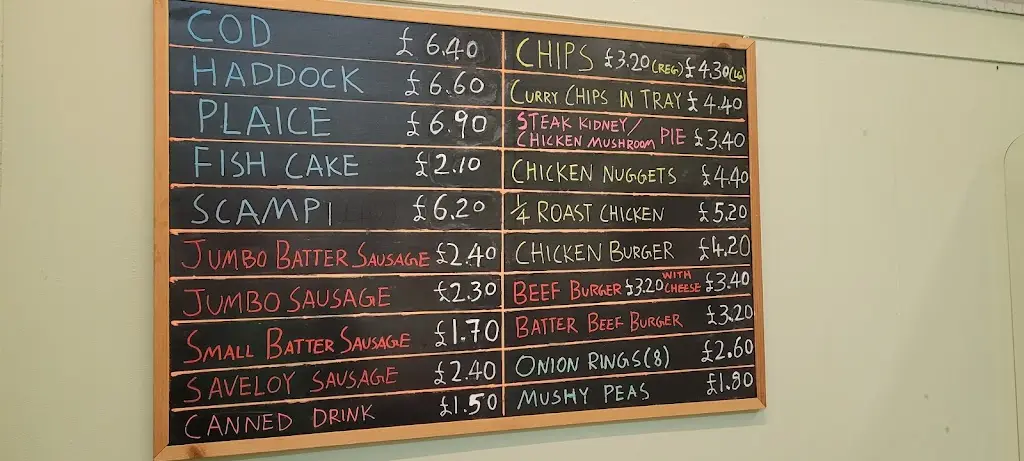 COD £6.40
HADDOCK £6.60
PLAICE £6.90
FISH CAKE £2.10
SCAMPI £6.20
JUMBO BATTER SAUSAGE £2.40
JUMBO SAUSAGE £2.30
SMALL BATTER SAUSAGE £1.70
SAVELOY SAUSAGE £2.40
CANNED DRINK £1.50
CHIPS £3.20 (REG) £4.30 (LG)
CURRY CHIPS IN TRAY £4.40
STEAK KIDNEY/
CHICKEN MUSHROOM PIE £3.40
CHICKEN NUGGETS £4.40
1/4 ROAST CHICKEN £5.20
CHICKEN BURGER £4.20
BEEF BURGER £3.20 WITH CHEESE £3.40
BATTER BEEF BURGER £3.20
ONION RINGS (8) £2.60
MUSHY PEAS £1.80